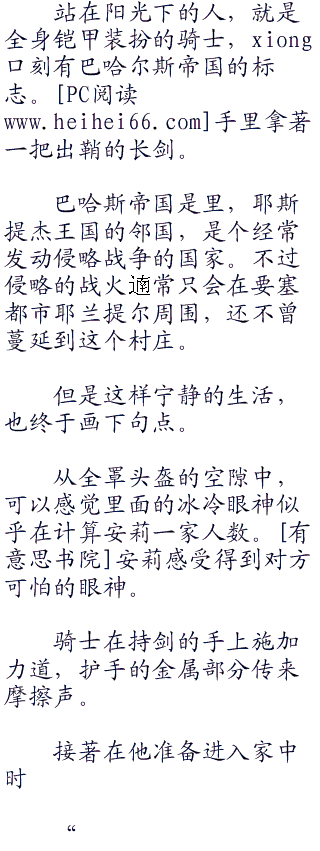 站在阳光下的人，就是
全身铠甲装扮的骑士，xiong
口刻有巴哈尔斯帝国的标
志。[PC阅读
www.heihei66.com]手里拿著
一把出鞘的长剑。
巴哈斯帝国是里，耶斯
提杰王国的邻国，是个经常
发动侵略战争的国家。不过
侵略的战火通常只会在要塞
都市耶兰提尔周围，还不曾
蔓延到这个村庄。
但是这样宁静的生活，
也终于画下句点。
从全罩头盔的空隙中，
可以感觉里面的冰冷眼神似
乎在计算安莉一家人数。[有
意思书院]安莉感受得到对方
可怕的眼神。
骑士在持剑的手上施加
力道，护手的金属部分传来
摩擦声。
接著在他准备进入家中
时
“